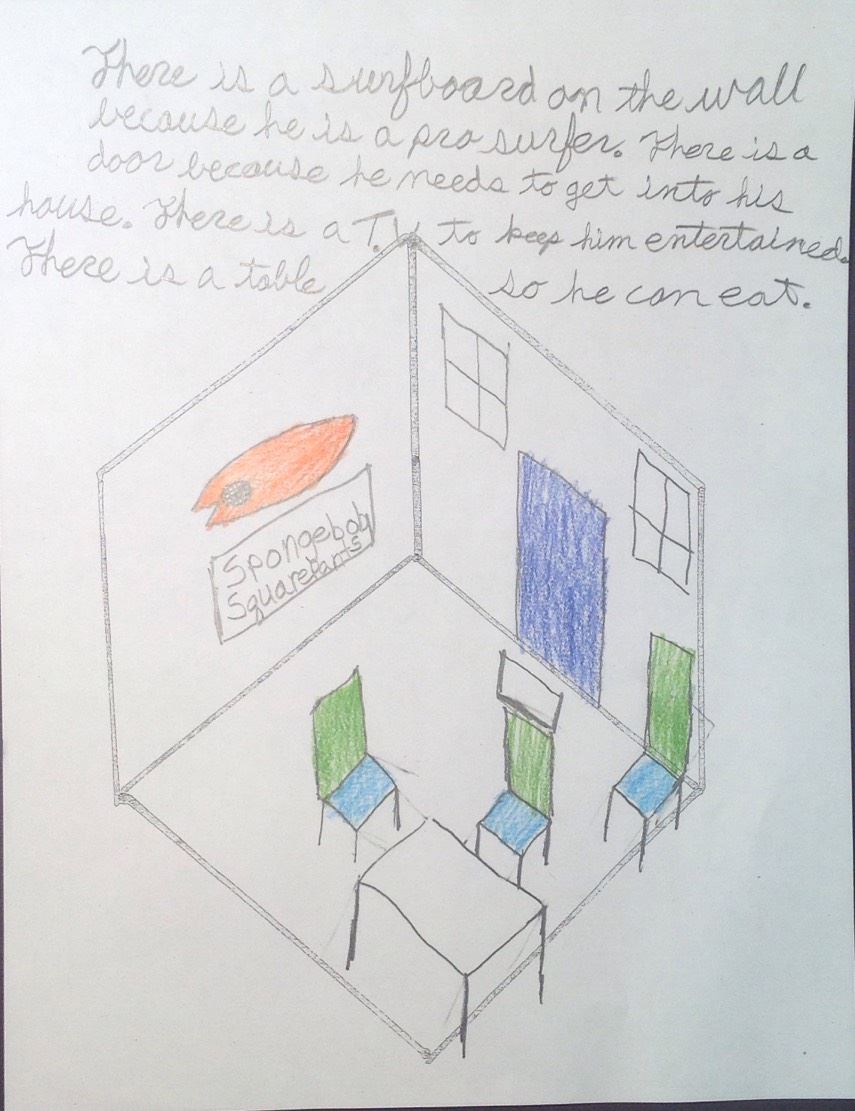 There is a surfboard on the wall
because he is a pro surfer. There is a
door because he needs to get into his
house. There is a T.V to keep him entertained.
There is a table so he can eat.
Spongebob
SquarePants